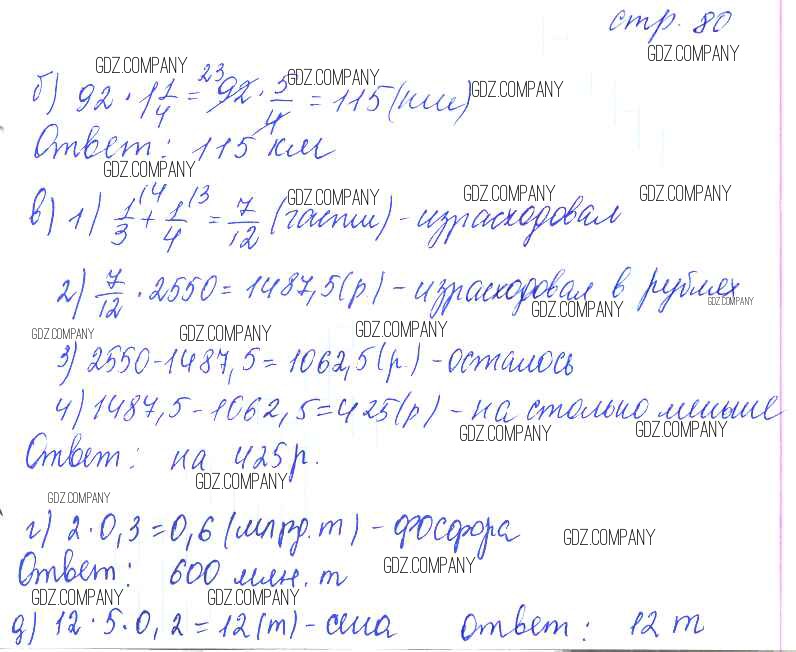 стр. 80
GDZ.COMPANY
GDZ.COMPANY GDZ.COMPANY GDZ.COMPANY
б) 92 · 1 1/4 = 23 92 · 5/4 = 115 (км)
Ответ: 115 км
GDZ.COMPANY
GDZ.COMPANY GDZ.COMPANY GDZ.COMPANY
в) 1) 1/3 (4 + 1/4 (3 = 7/12 (части) - израсходовал
2) 7/12 · 2550 = 1487,5 (р.) - израсходовал в рублях
GDZ.COMPANY GDZ.COMPANY
GDZ.COMPANY GDZ.COMPANY GDZ.COMPANY
3) 2550 - 1487,5 = 1062,5 (р.) - осталось
4) 1487,5 - 1062,5 = 425 (р) - на столько меньше
GDZ.COMPANY GDZ.COMPANY
Ответ: на 425 р.
GDZ.COMPANY
GDZ.COMPANY
г) 2 · 0,3 = 0,6 (млрд. т) - фосфора
GDZ.COMPANY
Ответ: 600 млн. т
GDZ.COMPANY
GDZ.COMPANY GDZ.COMPANY
д) 12 · 5 · 0,2 = 12 (т) - сена Ответ: 12 т